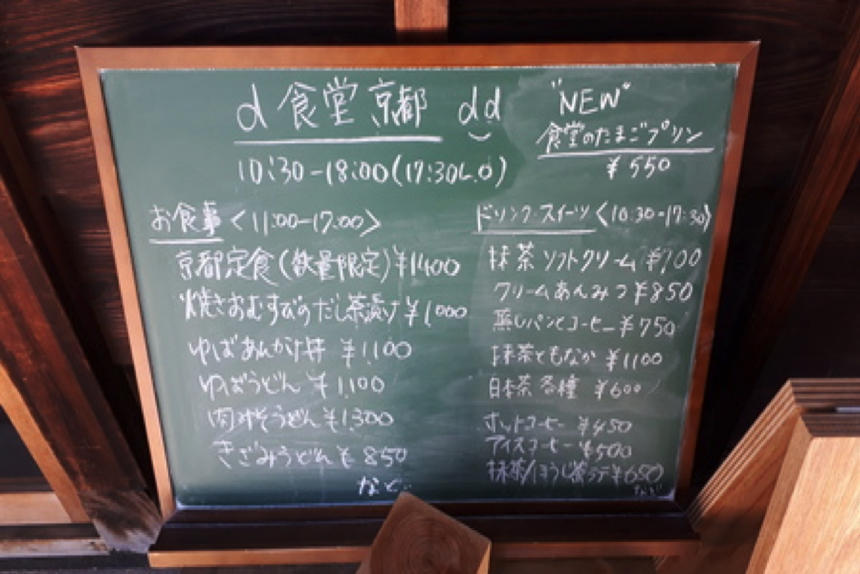 d 食堂 京都 dd
10:30-18:00(17:30L.O)
"NEW"
食堂のたまごプリン
¥550
お食事<11:00-17:00>
京都定食(数量限定)¥1400
焼きおむすびのだし茶漬け¥1,000
ゆばあんかけ丼 ¥1,100
ゆばうどん ¥1,100
肉みそうどん ¥1300
きざみうどん ¥850
など
ドリンク・スイーツ<10:30-17:30>
抹茶ソフトクリーム¥700
クリームあんみつ¥850
蒸しパンとコーヒー¥750
抹茶ともなか ¥1100
日本茶各種 ¥600
ホットコーヒー ¥450
アイスコーヒー ¥500
抹茶/ほうじ茶ラテ¥650
など